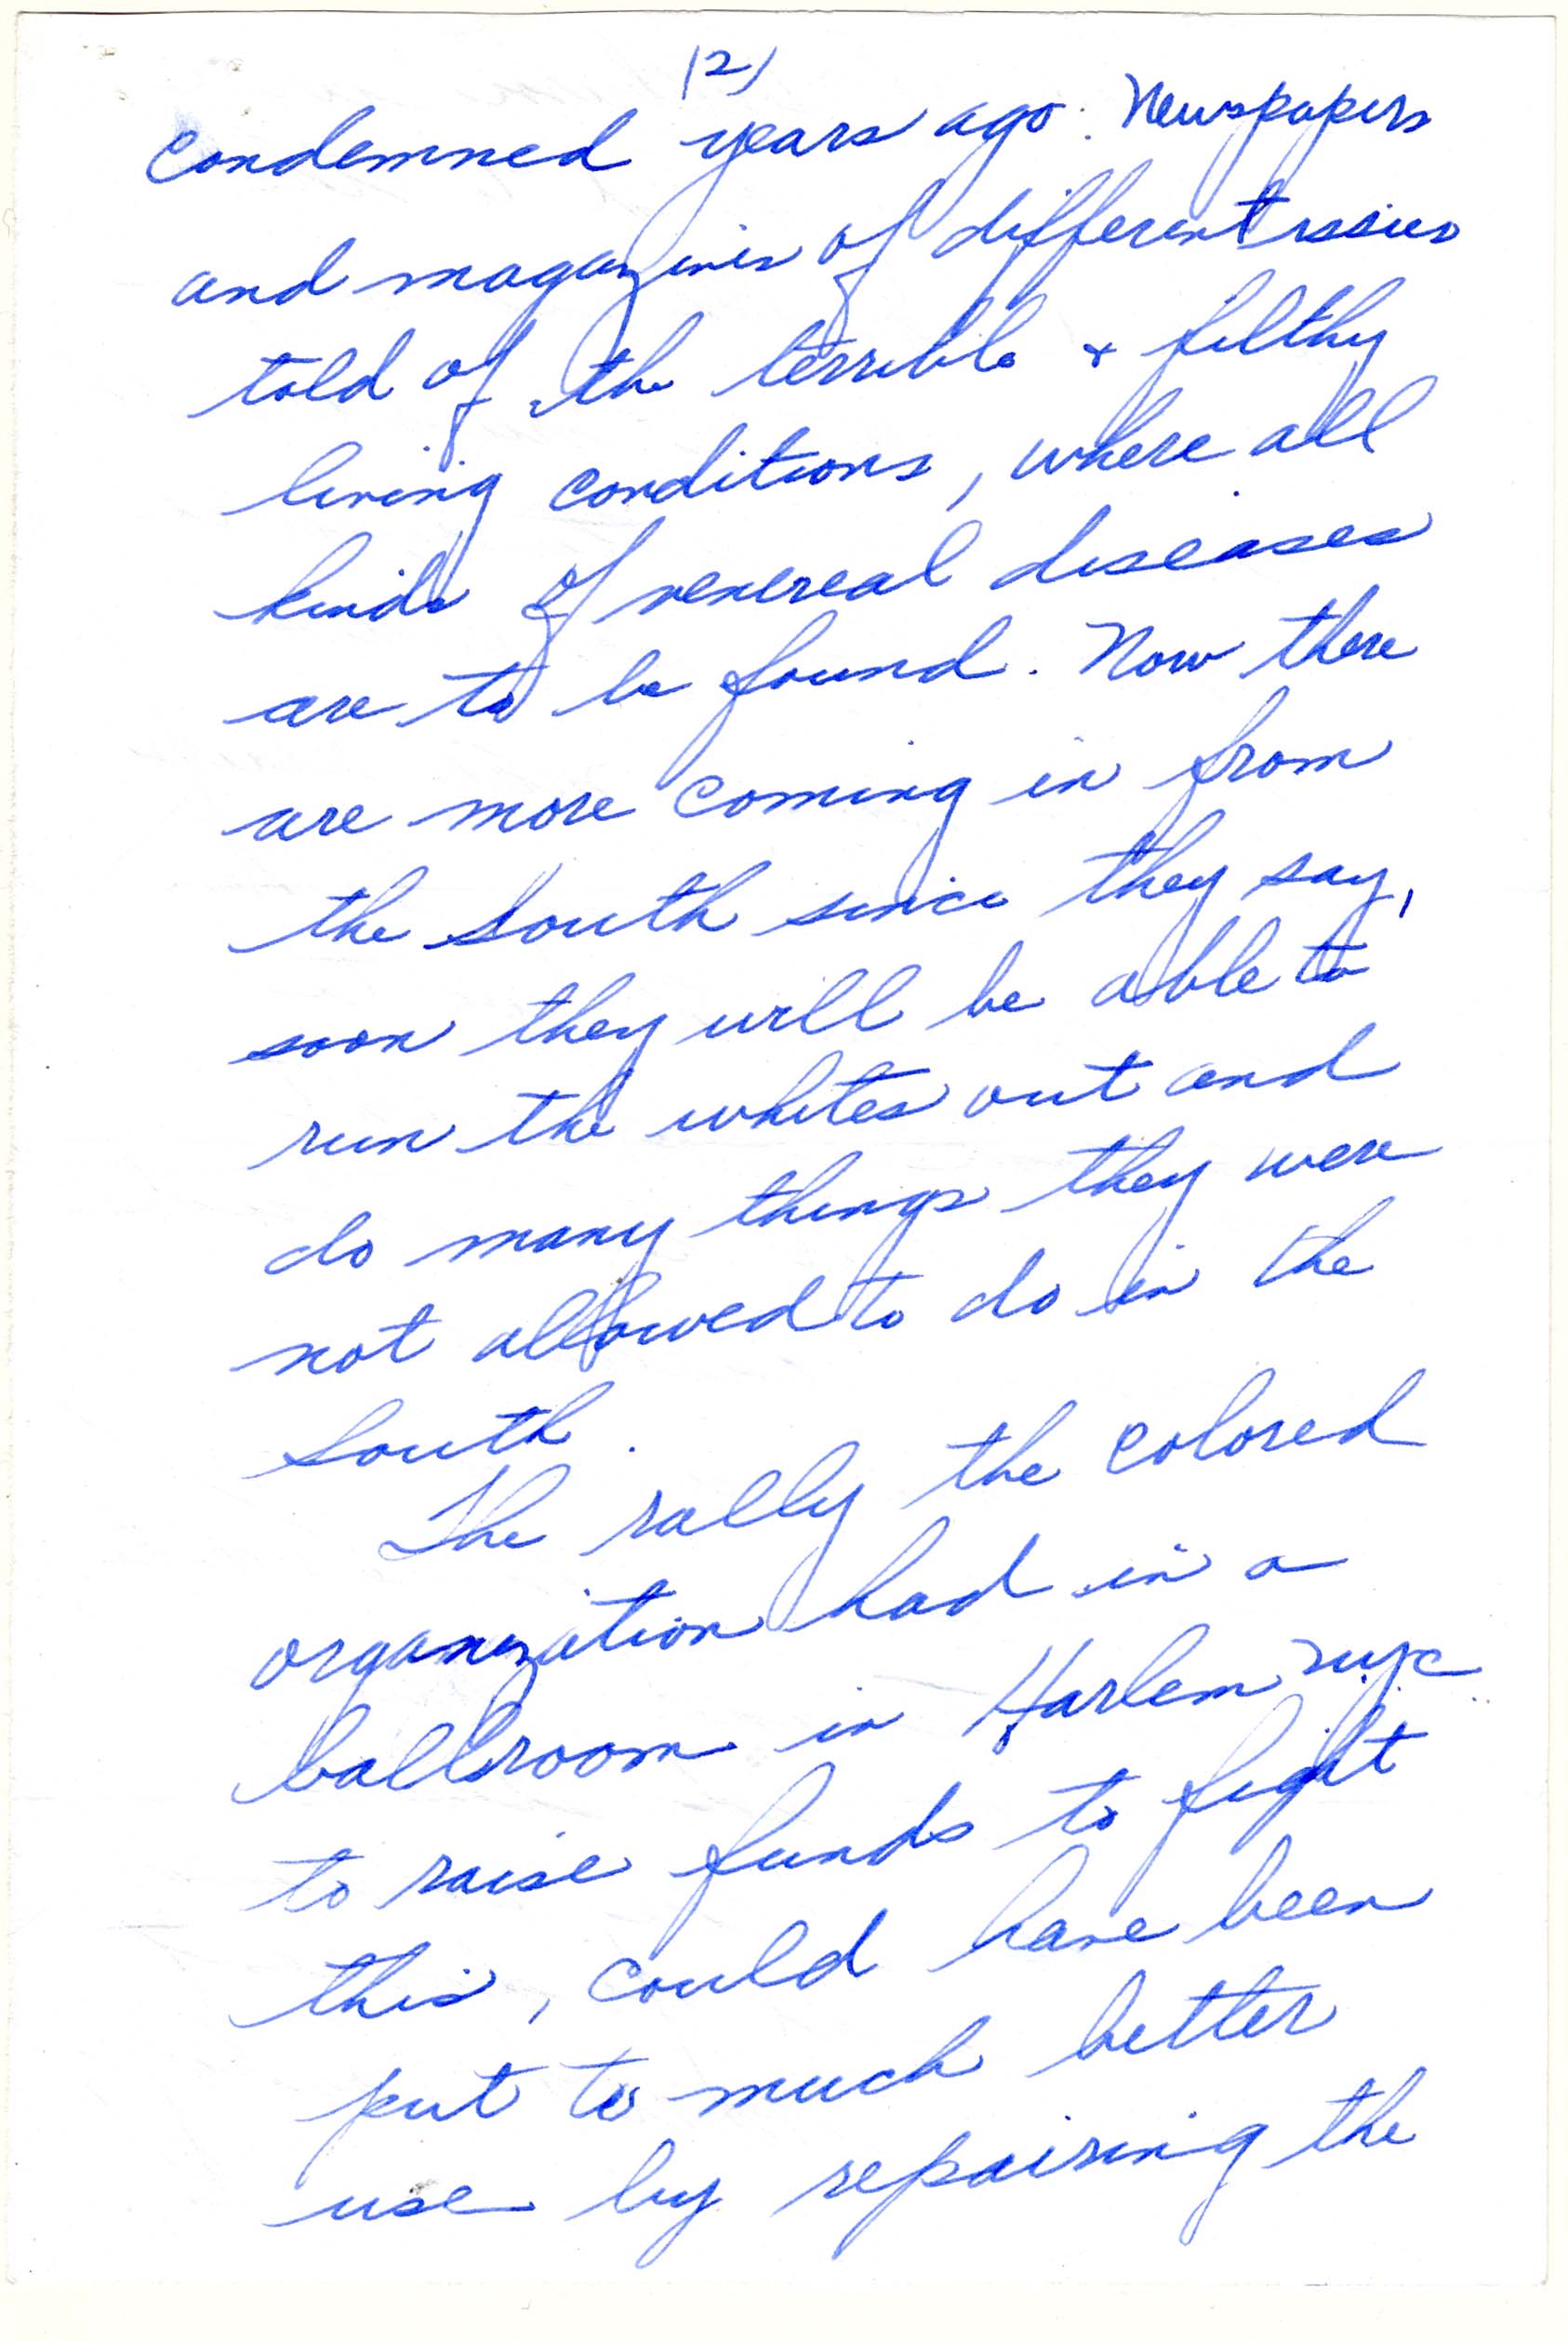 (2)
condemned years ago. Newspapers
and magazines of different issues
told of the terrible + filthy
living conditions, where all
kinds of venereal diseases
are to be found. Now there
are more coming in from
the South since they say,
soon they will be able to
run the whites out and
do many things they were
not allowed to do in the
South.
The rally the colored
organization had in a
ballroom in Harlem NYC
to raise funds to fight
this, could have been
put to much better
use by repairing the